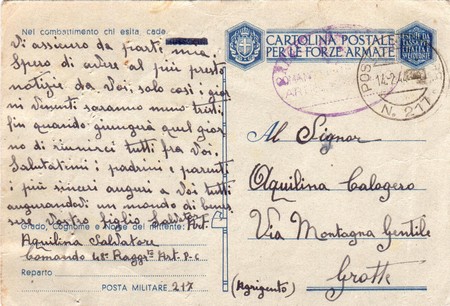 Nel combattimento chi esita, cade.
Vi assicuro da parte mia,
Spero di aver al più presto
notizie da Voi, solo così i gior
ni venuti saranno meno tristi,
fin quando giungerà quel gior
no di riunirci tutti fra Voi
Salutatimi i padrini e parenti
i più sinceri auguri a Voi tutti
augurandovi un mondo di
sere, Vostro figlio Salvatore
Grado, Cognome e Nome del mittente: Art.
Aquilina Salvatore
Comando 48° Raggr.to Art. P-C
Reparto
POSTA MILITARE 217
CARTOLINA POSTALE
PER LE FORZE ARMATE
POS
N. 217
Al Signor
Aquilina Calogero
Via Montagna Gentile
(Agrigento) Grotte